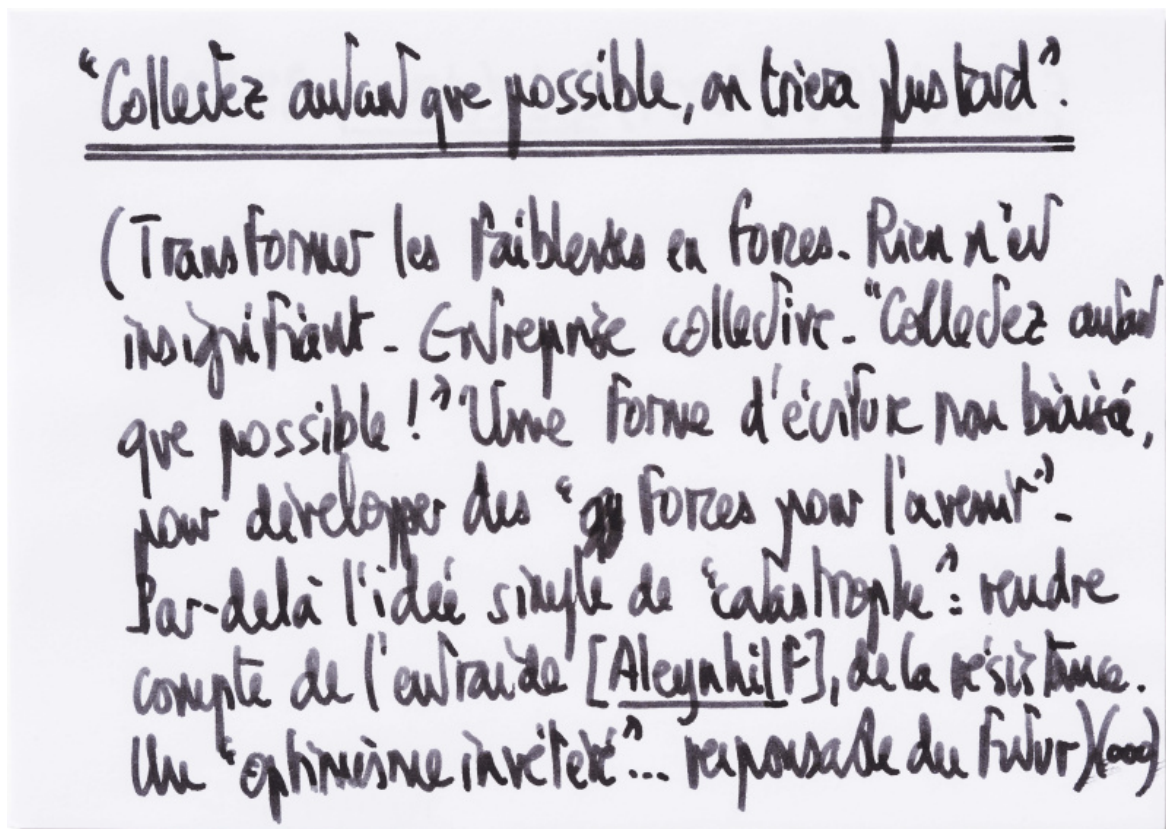 "Collectez autant que possible, on triera plus tard".
(Transformer les faiblesses en forces. Rien n'est
insignifiant. Entreprise collective. "Collectez autant
que possible !" Une forme d'écriture non biaisée,
pour développer des " forces pour l'avenir".
Par-delà l'idée simple de "catastrophe" : rendre
compte de l'entraide [Aleynhilf], de la résistance.
Un "optimisme invétéré"... responsable du futur)